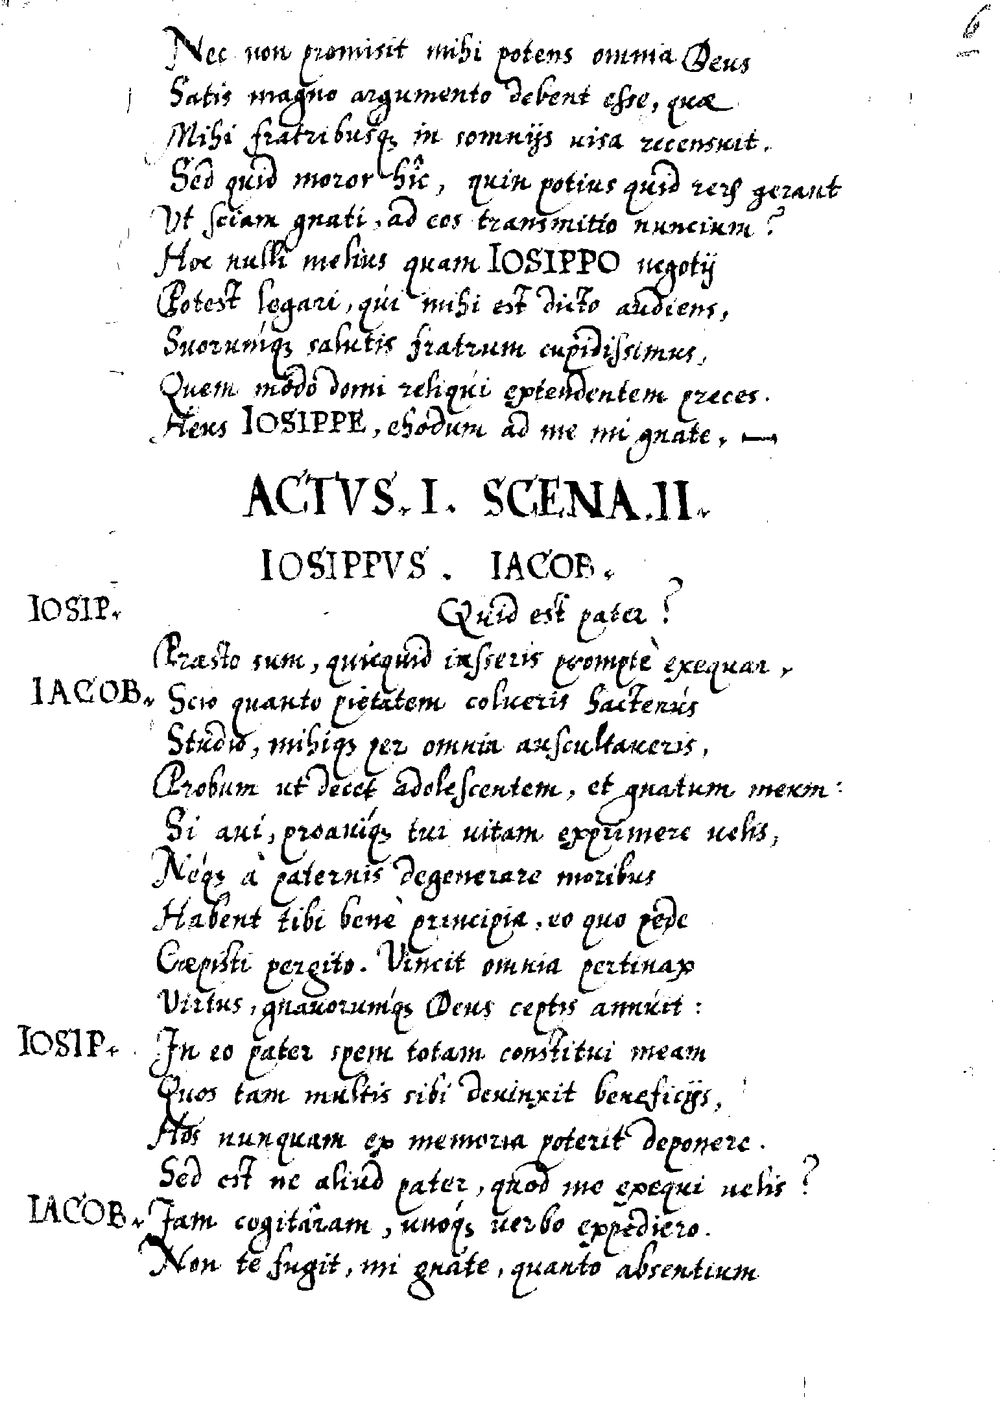 6
Nec non promisit mihi potens omnia Deus
Satis magno argumento debent esse, quæ
Mihi fratribusq; in somnijs uisa recensuit.
Sed quid moror hîc, quin potius quid rerum gerant
Ut sciam gnati, ad eos transmitto nuncium?
Hoc nulli melius quam IOSIPPO negotij
Potest legari, qui mihi est dicto audiens,
Suorumq́; salutis fratrum cupidissimus,
Quem modò domi reliqui extendentem preces.
Heus IOSIPPE, ehodum ad me mi gnate.
ACTVS. I. SCENA. II.
IOSIPPVS. IACOB.
IOSIP. Quid est pater?
Præsto sum, quicquid iusseris promptè exequar.
IACOB. Scio quanto pietatem colueris hactenus
Studio, mihiq; per omnia auscultaueris,
Probum ut decet adolescentem, et gnatum meum:
Si aui, proauiq́; tui uitam exprimere uelis,
Neq́; à paternis degenerare moribus
Habent tibi benè principia, eo quo pede
Cœpisti pergito. Vincit omnia pertinax
Virtus, gnauorumq́; Deus ceptis annuit:
IOSIP. In eo pater spem totam constitui meam
Quos tam multis sibi deuinxit beneficijs,
Hos nunquam ex memoria poterit deponere.
Sed est ne aliud pater, quod me exequi uelis?
IACOB. Iam cogitâram, unoq́; uerbo expediero.
Non te fugit, mi gnate, quanto absentium